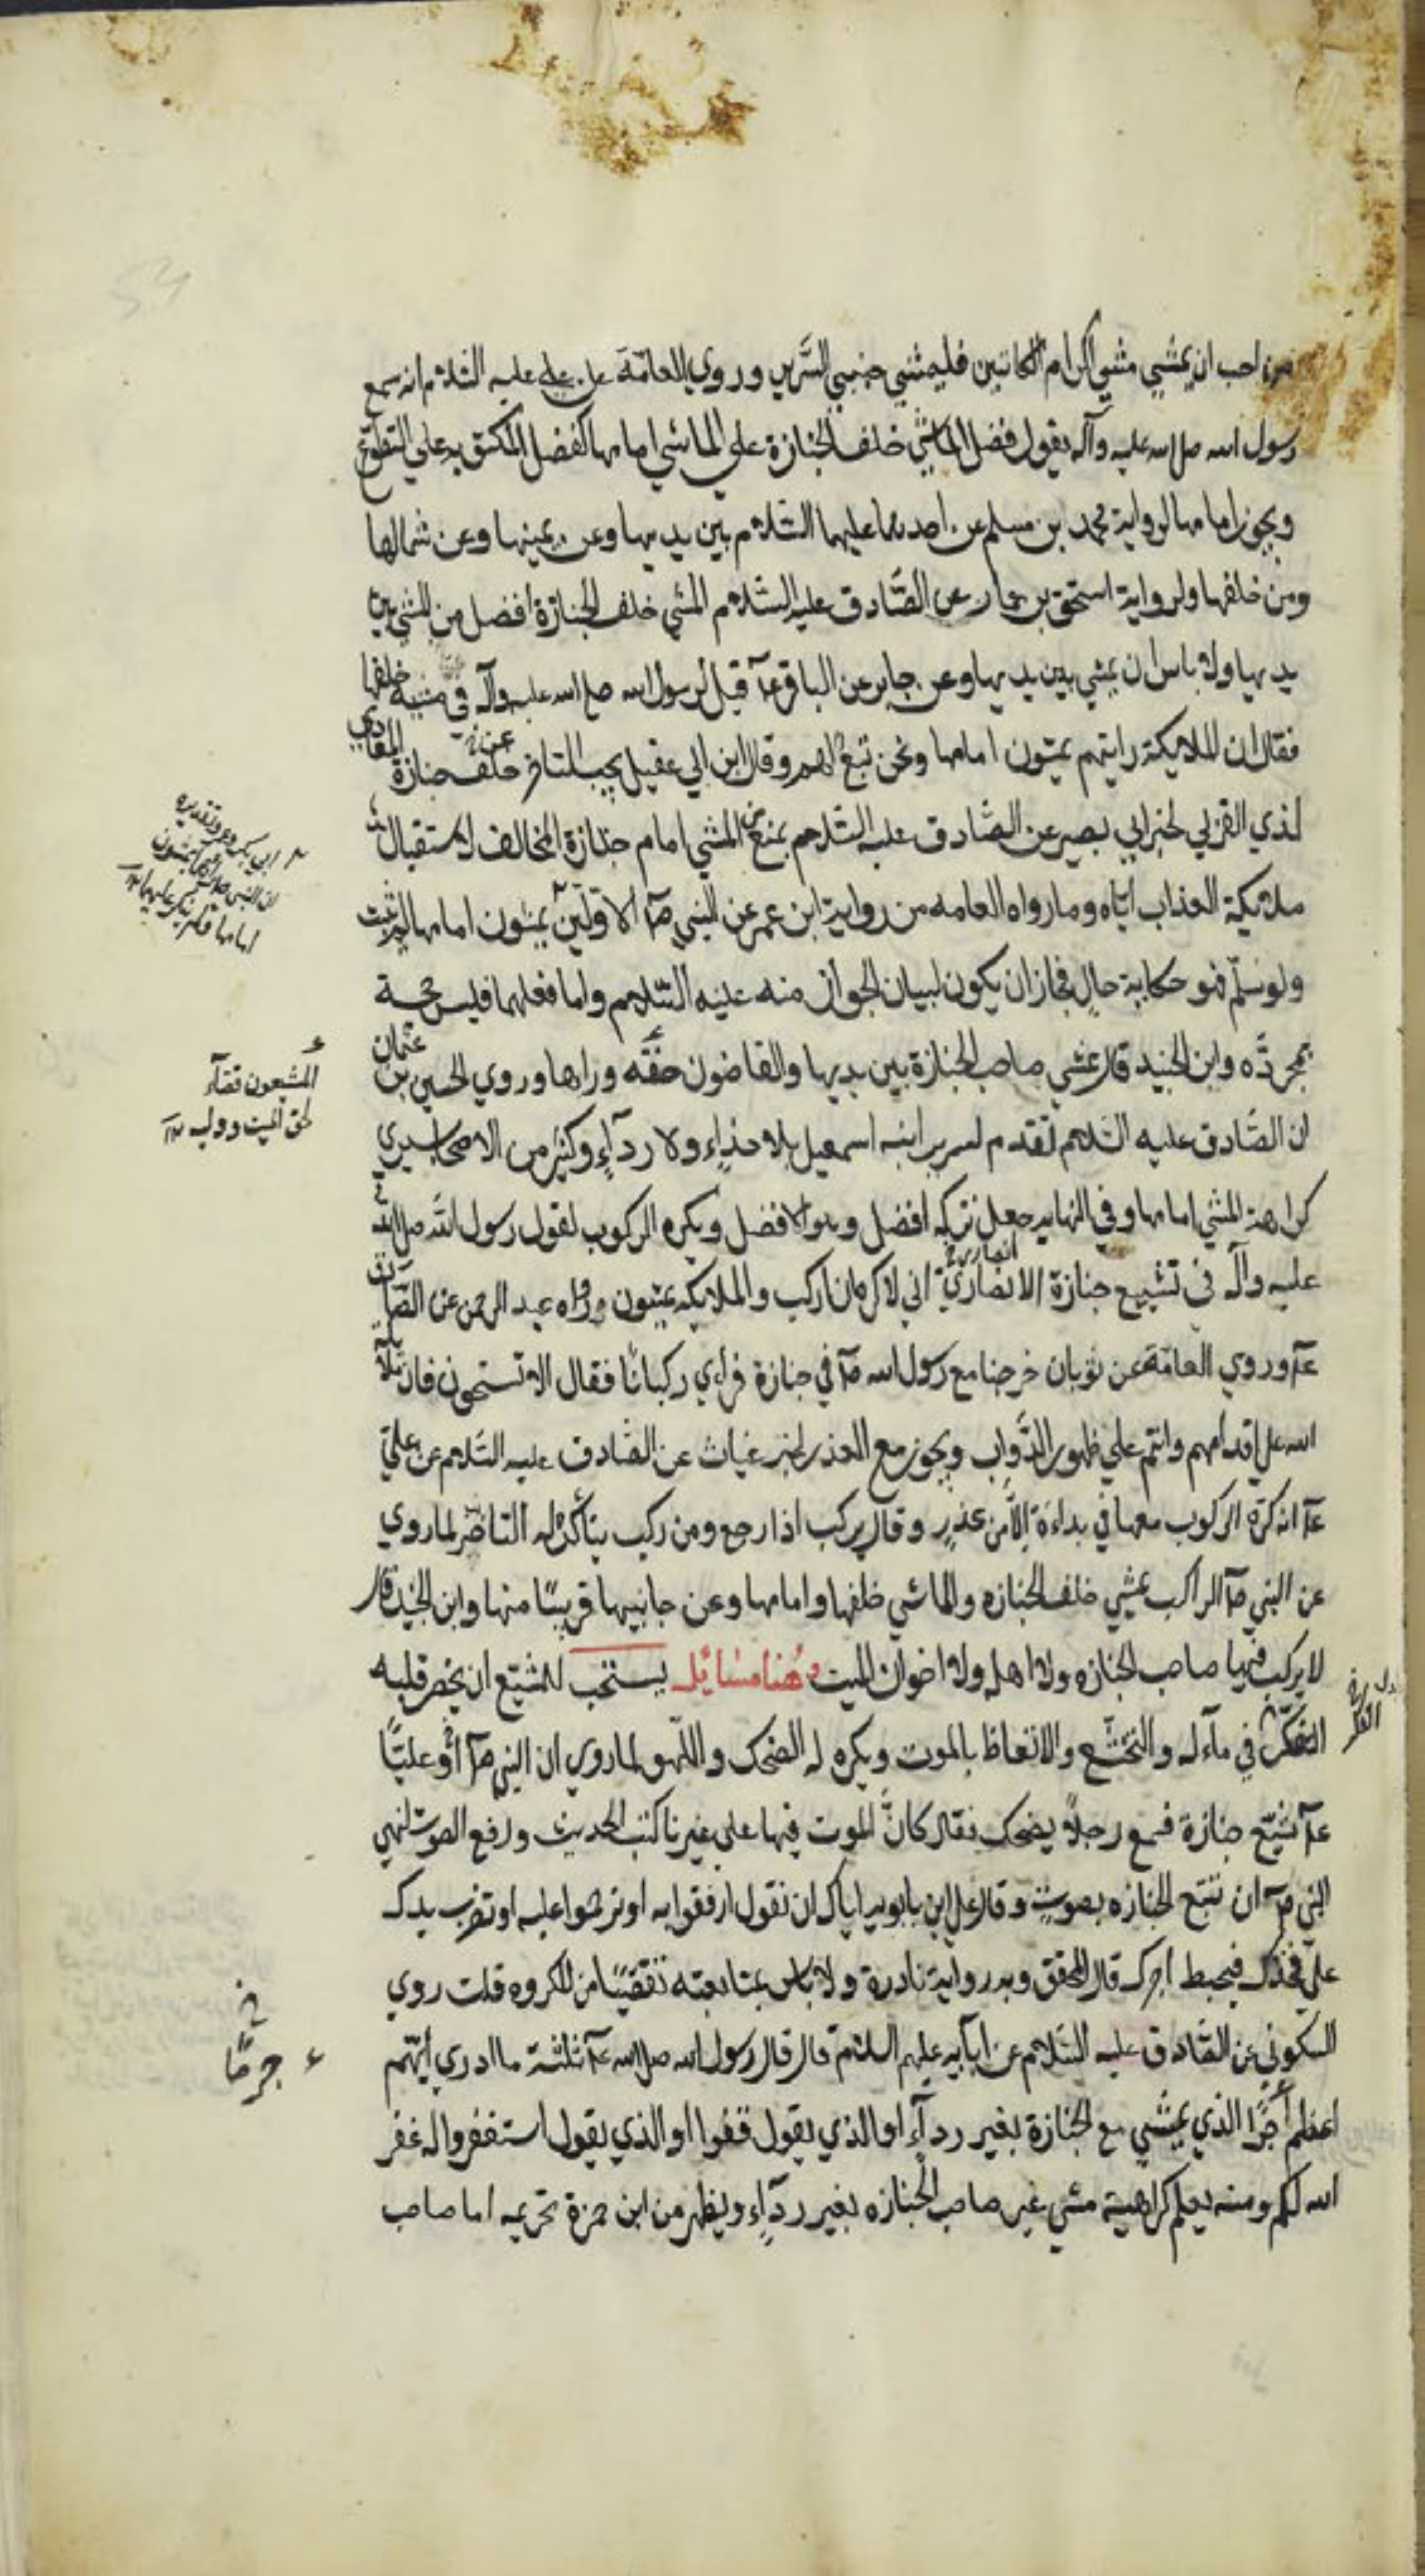 من احب ان يمشي مشي الكرام الكاتبين فليمش جنبي السرير وروي العامة عن علي عليه السلام انه سمع
رسول الله صلى الله عليه وآله يقول فضل الماشي خلف الجنازة علي الماشي امامها كفضل المكتوبة علي التطوع
ويجوز امامها لرواية محمد بن مسلم عن احدهما عليهما السلام بين يديها وعن يمينها وعن شمالها
ومن خلفها ولرواية اسحق بن عمار عن الصادق عليه السلام المشي خلف الجنازة افضل من المشي بين
يديها ولا باس ان يمشي بين يديها وعن جابر عن الباقر عآ قيل لرسول الله صلى الله عليه وآله في مشيه خلفها
فقال ان الملايكة رايتهم يمشون امامها ونحن تبع لهم وقال ابن ابي عقيل يجب التاخر خلف جنازة المعادي
لذي القربي لخبر ابي بصير عن الصادق عليه السلام بمنع المشي امام جنازة المخالف لاستقبال
ملائكة العذاب اياه وما رواه العامه من رواية ابن عمر عن النبي صآ الاولين يمشون امامها لم يثبت
ولو سلم فهو حكاية حال فجاز ان يكون لبيان الجواز منه عليه السلام واما فعلهما فليس حجة
بمجرده وابن الجنيد قال يمشي صاحب الجنازة بين يديها والقاضون حقه وراها وروي الحسين بن عثمان
ان الصادق عليه السلام تقدم لسرير ابنه اسمعيل بلا حذاء ولا رداء وكثير من الاصحاب يري
كراهة المشي امامها وفي النهاية جعل تركه افضل وهو الافضل ويكره الركوب لقول رسول الله صلى الله
عليه وآله في تشييع جنازة الانصاري اني لاكره ان اركب والملايكه يمشون ورواه عبد الرحمن عن الصادق
عآ وروي العامة عن ثوبان خرجنا مع رسول الله صآ في جنازة فرأي ركبانا فقال الا تستحون فان ملائكة
الله علي اقدامهم وانتم علي ظهور الدواب ويجوز مع العذر لخبر غياث عن الصادق عليه السلام عن علي
عآ انه كره الركوب معها في بداءة الا من عذر وقال يركب اذا رجع ومن ركب يتأكد له التاخر لما روي
عن النبي صآ الراكب يمشي خلف الجنازه والماشي خلفها وامامها وعن جانبيها قريبا منها وابن الجنيد قال
لا يركب فيها صاحب الجنازه ولا اهله ولا اخوان الميت وهنا مسايل يستحب للمشيع ان يحضر قلبه
التفكر في مآله والتخشع والاتعاظ بالموت ويكره له الضحك واللهو لما روي ان النبي صآ أو عليا
عآ شيع جنازة فسمع رجلا يضحك فقال كان الموت فيها علي غيرنا كتب الحديث ورفع الصوت لنهي
النبي صآ ان تتبع الجنازه بصوت وقال علي ابن بابويه اياك ان تقول ارفقوا به او ترحموا عليه او تضرب يدك
علي فخذك فيحبط اجرك قال المحقق وبه رواية نادرة ولا باس بمتابعته تفصيا من المكروه قلت روي
السكوني عن الصادق عليه السلام عن ابآيه عليهم السلام قال قال رسول الله صلى الله عآ ثلثة ما ادري ايهم
اعظم أجرا الذي يمشي مع الجنازة بغير رداء او الذي يقول قفوا او الذي يقول استغفروا له غفر
الله لكم ومنه يعلم كراهية مشي غير صاحب الجنازه بغير رداء ويظهر من ابن حمزة تحريمه اما صاحب
المشيعون قضآء
لحق الميت ووليه
جرمًا